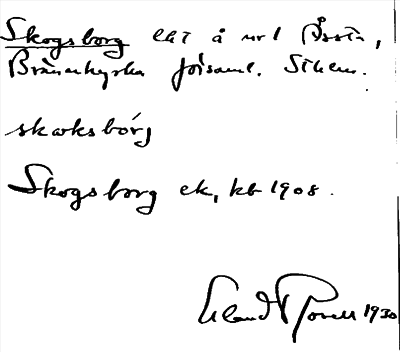 Skogsborg lht å nr 1 Årsta,
Brännkyrka församl. Sthlm.
skoksbórj
Skogsborg ek, kb 1908.
Erland Rosell 1930